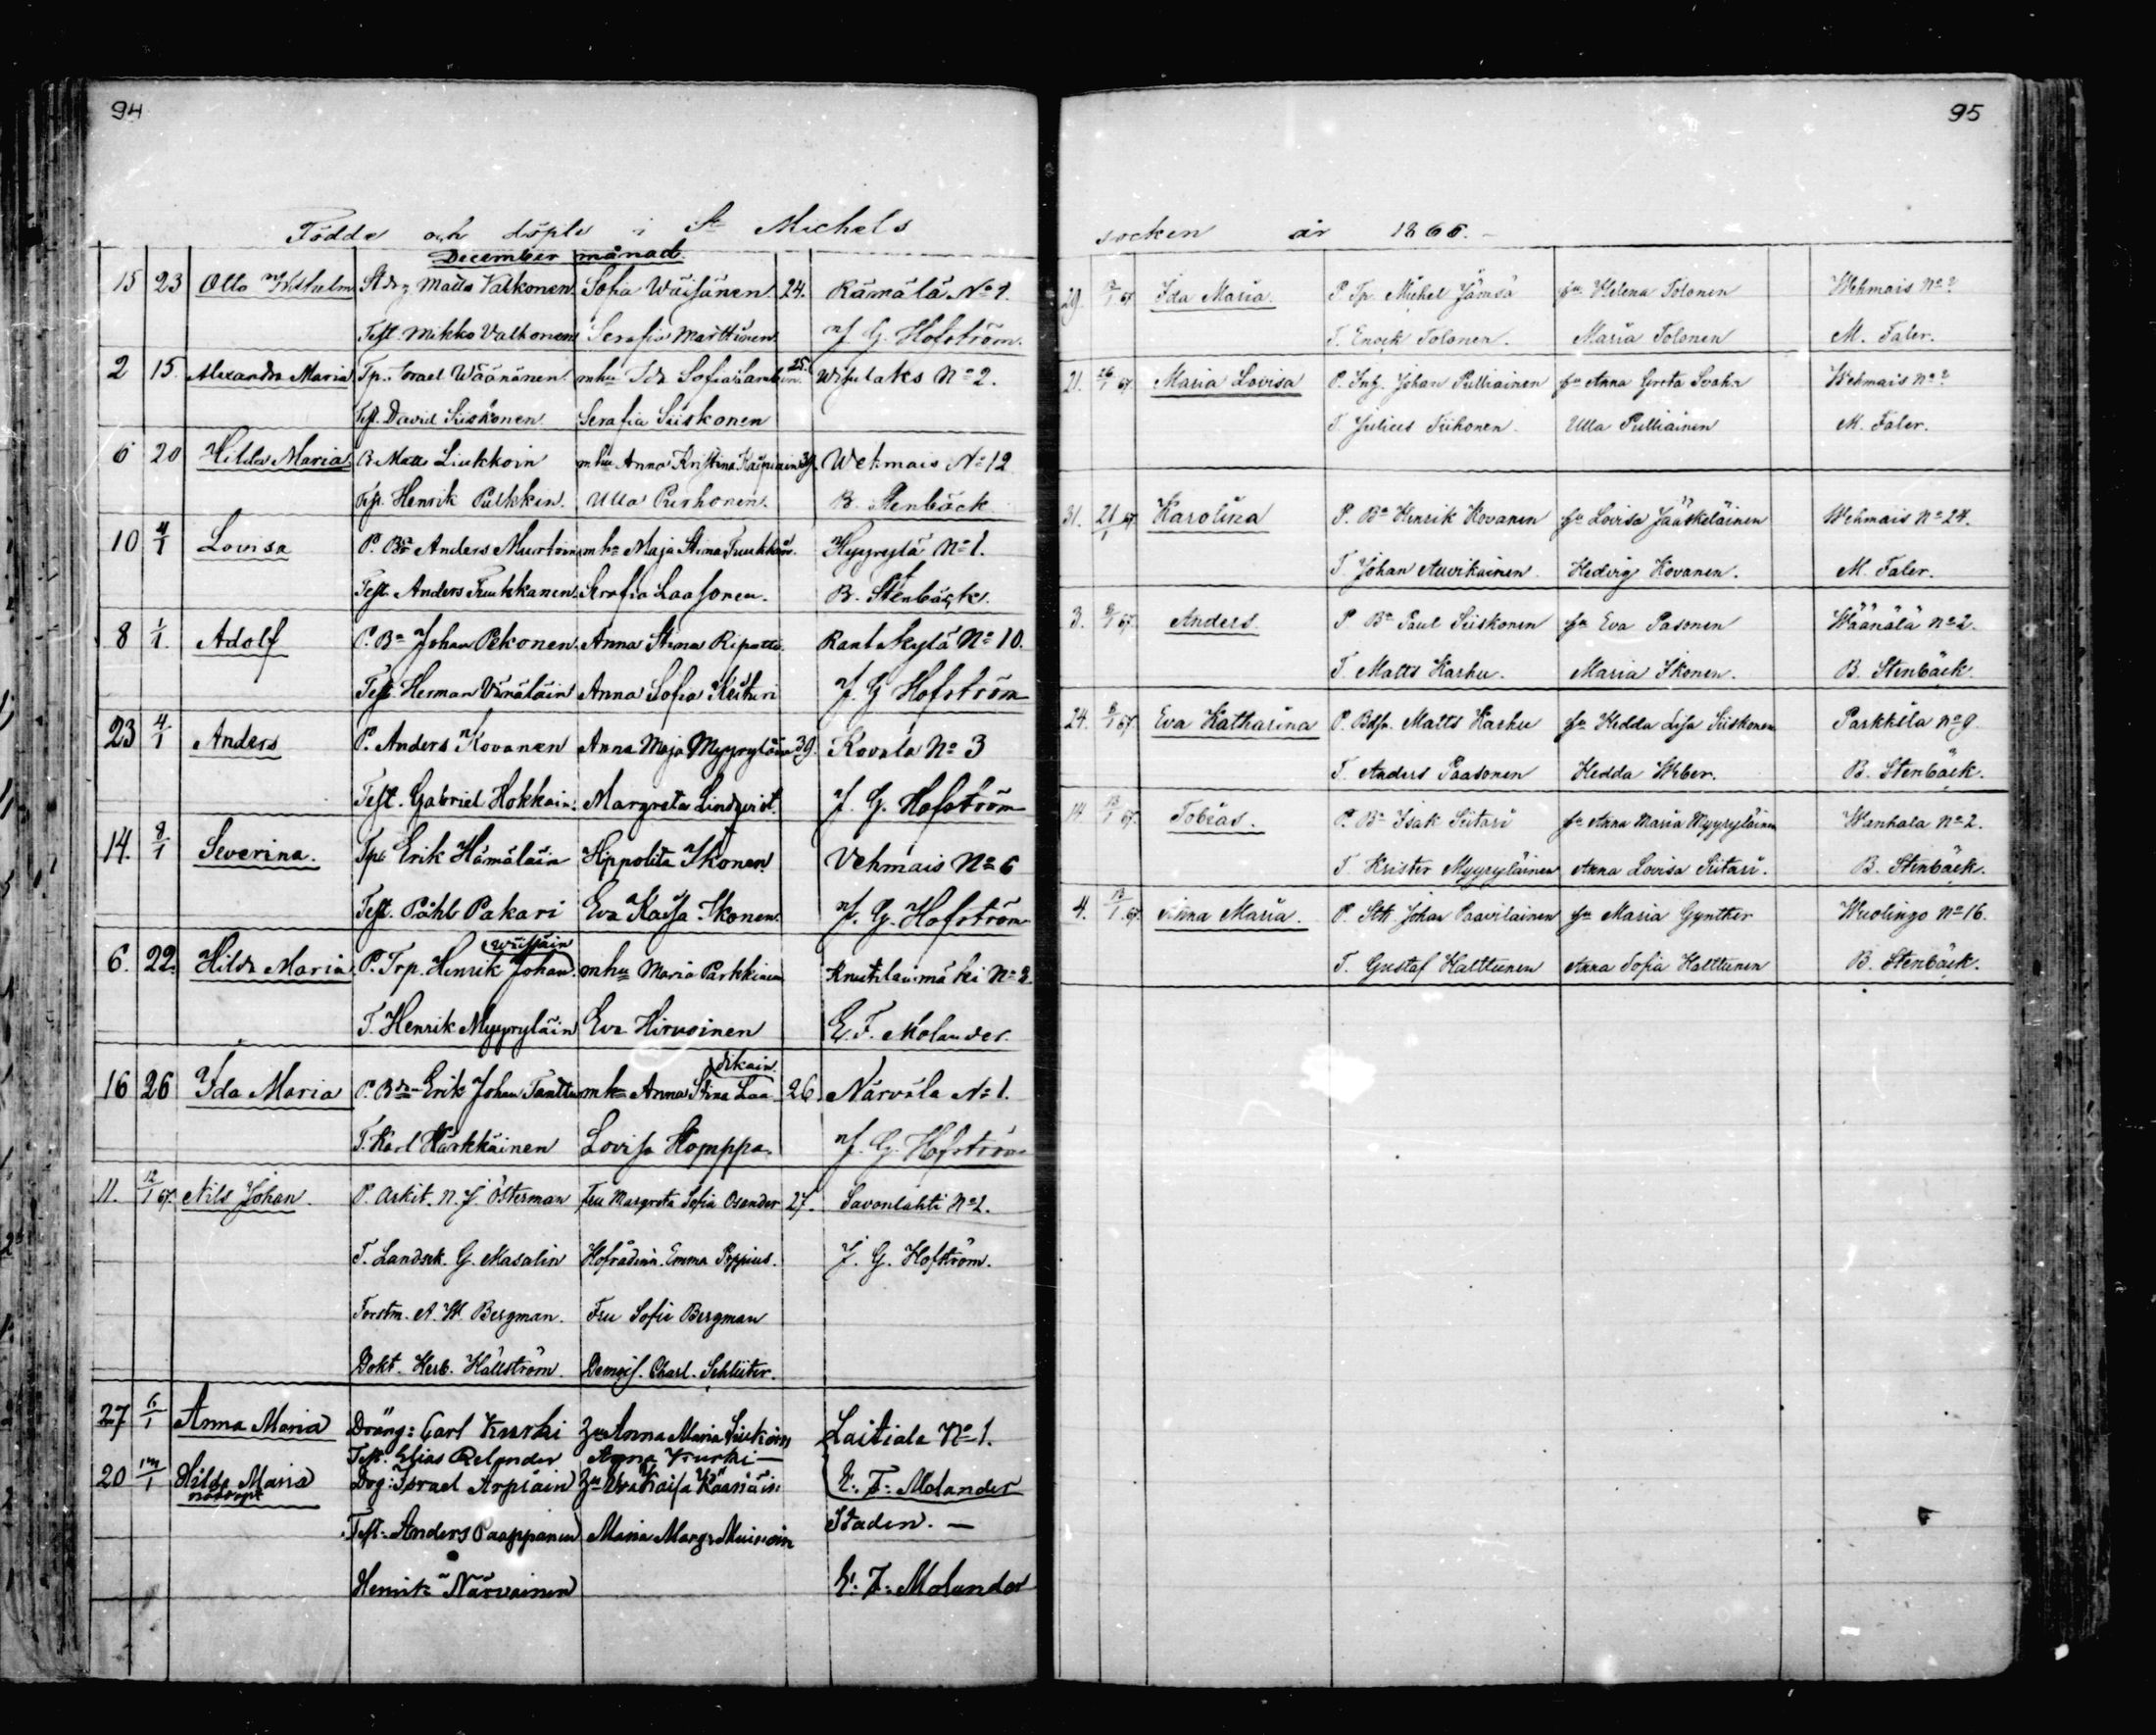 94
Födde och döpte i St Michels
December månad
15 23 Otto Wilhelm Stdr. Matts Valkonen Sofia Wäisänen 24. Rämälä No 1.
Test. Mikko Valkonen Serafia Marttinen J. G. Hofström.
2 15. Alexandra Maria Tp. Israel Wäänänen mhu Ida Sofia 25. No 2.
Test. David Siiskonen Serafia Siiskonen
6 20 Hilda Maria B. Matts Liukkoin mhu Anna Kristina 39. Wehmais No 12
Test. Henrik Pulkkin. Ulla Purhonen. B. Stenbäck
10 4/1 Lovisa P. Bn Anders mhu Maja Stina Hyyrylä No 1.
Test. Anders Tuukkanen Serafia Laasonen. B. Stenbäck.
8 1/1. Adolf P. Bn Johan Pekonen. Anna Stina Ripatti. Rantakylä No 10.
Test. Herman Anna Sofia J. G Hofström
23 4/1 Anders P. Anders Kovanen Anna Maja Myyryläin 39. Rovala No 3
Test. Gabriel Hokkain. Margreta Lindqvist. J. G. Hofström
14. 8/1 Severina. Tp. Erik Hämäläin Hippolita Ikonen Vehmais No 6
Test. Påhl Pakari Eva Kaisa Ikonen. J. G. Hofström
6. 22. Hilda Maria P. Trp. Henrik Johan mhu Maria Parkkinen Knuutilanmäki No 3.
T. Henrik Myyryläin Eva Hirvoinen E. F. Molander.
dikain.
16 26 Ida Maria P. Bdn Erik Johan Tanttu mhu Anna Stina Laa 26. Närvälä No 1.
T. Karl Härkkäinen Lovisa Homppa. J. G. Hofström
11. 12/1 67. Nils Johan. P. Arkit. N. J. Österman Fru Margreta Sofia Osander 27. Savonlahti No 2.
T. Landsek. G. Masalin Hofrådinn. Emma Poppius. J. G. Hofström.
Forstm. A. W. Bergman. Fru Sofie Bergman
Dokt. Herb. Hällström. Demois. Charl. Schlüter.
27 6/1 Anna Maria Dräng: Carl Kurki Anna Maria Laitiala No 1.
Test: Elias Relander Anna Kurki —
20 Hilda Maria Drg: Israel Arpiain E. F. Molander
Test: Anders Paappanen Maria Margr. Staden. —
Henrik Närvainen E. F. Molander
95
socken år 1866. –
29. 67 Ida Maria. P. Tp. Michel Jämsä fu Helena Tolonen Wehmais No 2
T. Enock Tolonen. Maria Tolonen M. Faler.
21. 26/1 67. Maria Lovisa P. Inh. Johan Pulliainen fu Anna Greta Svahn Wehmais No 2
T. Julius Siikonen. Ulla Pulliainen M. Faler.
31. 21/1 67 Karolina P. Bn Henrik Kovanen fu Lovisa Jääskeläinen Wehmais No 24.
T. Johan Auvikainen Hedvig Kovanen. M. Faler.
3. 67. Anders P Bn Paul Siiskonen fu Eva Pasonen Wäänälä No 2.
T. Matts Karhu. Maria Ikonen. B. Stenbäck.
24. 67. Eva Katharina P. Bdsn. Matts Karhu fu Hedda Lisa Siiskonen Parkkila No 9.
T. Anders Paasonen Hedda Weber. B. Stenbäck.
14. 13/1 67. Tobias. P. Bn Isak Siitari fu Anna Maria Myyryläinen Wanhala No 2.
T. Krister Myyryläinen Anna Lovisa Siitari. B. Stenbäck.
4. 13/1 67. Anna Maria. P. Johan Paavilainen fu Maria Gynther Wuolingo No 16.
T. Gustaf Halttunen Anna Sofia Halttunen B. Stenbäck.